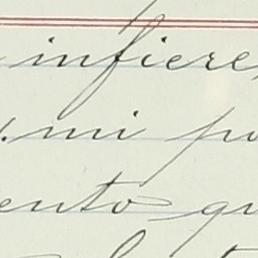 infiere
mi po
ento qu